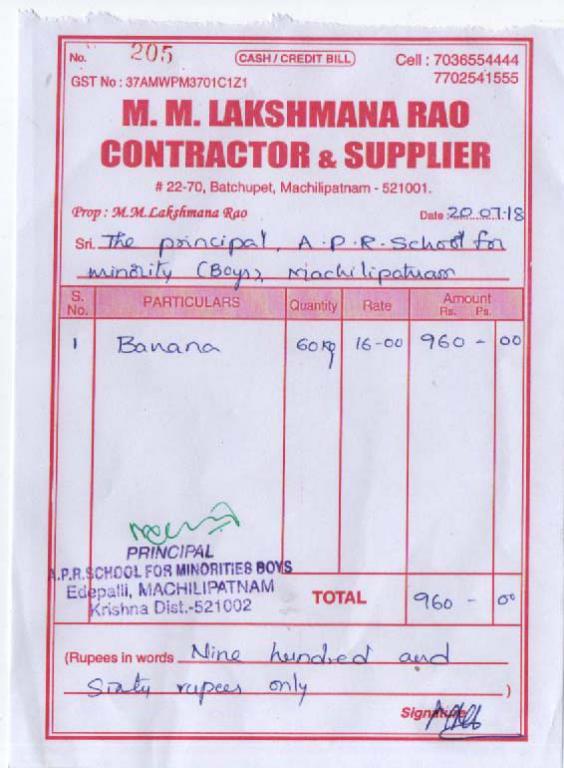 No. 205 CASH / CREDIT BILL Cell : 7036554444
GST No : 37AMWPM3701C1Z1 7702541555
M. M. LAKSHMANA RAO
CONTRACTOR & SUPPLIER
# 22-70, Batchupet, Machilipatnam - 521001.
Prop : M.M.Lakshmana Rao Date : 20.07.18
Sri. The principal, A.P.R. School for
minority (Boys), Machilipatnam
S. No. PARTICULARS Quantity Rate Amount Rs. Ps.
1 Banana 60 kg 16-00 960 - 00
PRINCIPAL
A.P.R.SCHOOL FOR MINORITIES BOYS
Edepalli, MACHILIPATNAM
Krishna Dist.-521002
TOTAL 960 - 00
(Rupees in words Nine hundred and
Sixty rupees only )
Signature